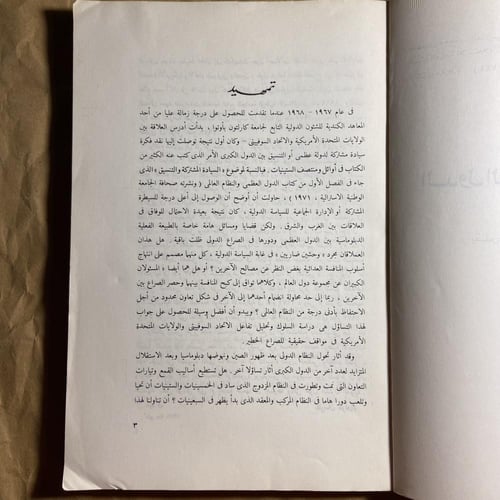 تمهيد
فى عام ١٩٦٧ – ١٩٦٨ عندما تقدمت للحصول على درجة زمالة عليا من أحد
المعاهد الكندية للشئون الدولية التابع لجامعة كارلتون بأوتوا ، بدأت أدرس العلاقة بين
الولايات المتحدة الأمريكية والاتحاد السوفييتى – وكان أول نتيجة توصلت إليها نقد فكرة
سيادة مشتركة لدولة عظمى أو التنسيق بين الدول الكبرى الأمر الذى كتب عنه الكثير من
الكتاب فى أوائل ومنتصف الستينيات . فبالنسبة لموضوع « السيادة المشتركة والتنسيق » والذى
جاء فى الفصل الأول من كتاب الدول العظمى والنظام العالمى ( ونشرته صحافة الجامعة
الوطنية الاسترالية ، ١٩٧١ ) ، حاولت أن أوضح أن الوصول إلى أعلى درجة للسيطرة
المشتركة أو الإدارة الجماعية للسياسة الدولية ، كان نتيجة بعيدة الاحتمال للوفاق فى
العلاقات بين الغرب والشرق . ولكن قضايا ومسائل هامة خاصة بالطبيعة الفعلية
الدبلوماسية بين الدول العظمى ودورها فى الصراع الدولى ظلت باقية . هل هذان
العملاقان مجرد « وحشين ضاريين » فى غابة السياسة الدولية ، كل منهما مصمم على انتهاج
أسلوب المنافسة العدائية بغض النظر عن مصالح الآخرين ؟ أو هل هما أيضا « المسئولان
الكبيران عن مجموعة دول العالم ، وكلاهما تواق إلى كبح المنافسة بينهما وحصر الصراع بين
الآخرين ، ربما إلى حد محاولة انضمام أحدهما إلى الآخر فى شكل تعاون محدود من أجل
الاحتفاظ بأدنى درجة من النظام العالمى ؟ ويبدو أن أفضل وسيلة للحصول على جواب
لهذا التساؤل هى دراسة السلوك وتحليل تفاعل الاتحاد السوفييتى والولايات المتحدة
الأمريكية فى مواقف حقيقية للصراع الخطير .
وقد أثار تحول النظام الدولى بعد ظهور الصين ونهوضها دبلوماسيا وبعد الاستقلال
المتزايد لعدد آخر من الدول الكبرى أثار تساؤلا آخر . هل تستطيع أساليب القمع وتيارات
التعاون التى نمت وتطورت فى النظام المزدوج الذى ساد فى الخمسينيات والستينيات أن تحيا
وتلعب دورا هاما فى النظام المركب والمعقد الذى بدأ يظهر فى السبعينيات ؟ أن تناولنا لهذا
٣